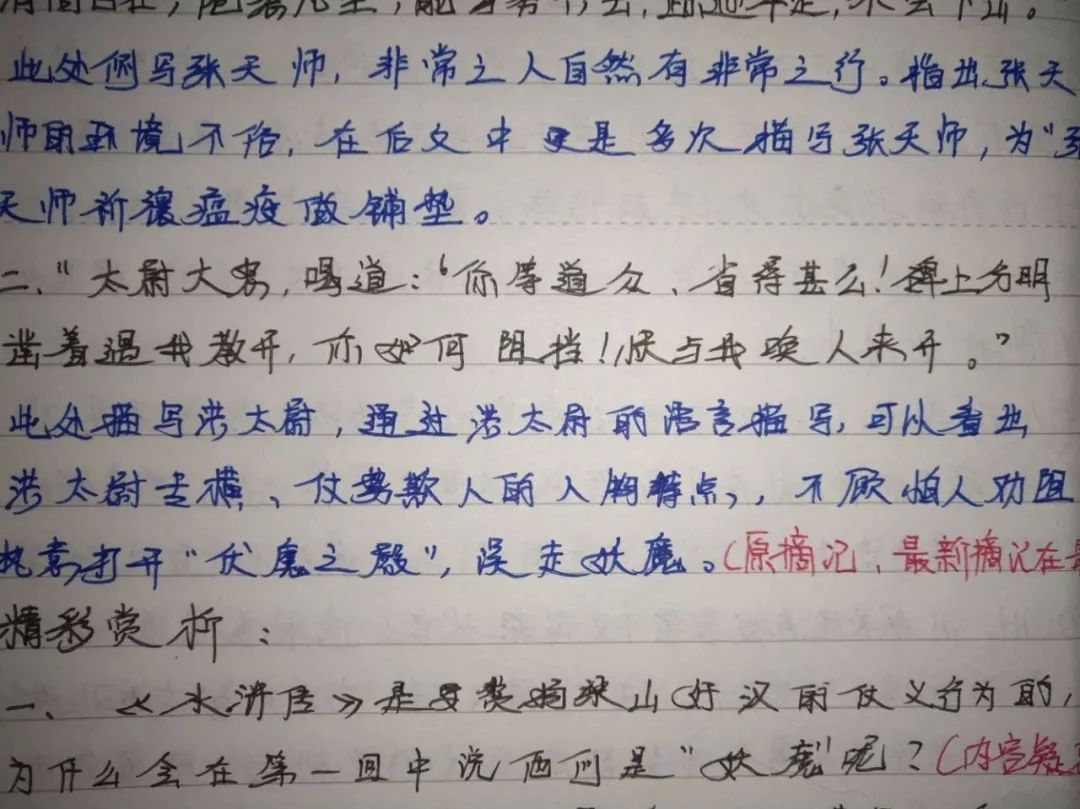 此处侧写张天师，非常之人自然有非常之行。指出张天
师的环境不俗，在后文中更是多次描写张天师，为“张
天师祈禳瘟疫做铺垫。
二、“太尉大怒，喝道：‘你等道众，省得甚么！碑上分明
凿着遇我教开，你如何阻挡！快与我唤人来开。”
此处描写洪太尉，通过洪太尉的语言描写，可以看出
洪太尉专横、仗势欺人的人物特点，不顾他人劝阻
执意打开“伏魔之殿”，误走妖魔。（原摘记，最新摘记在
精彩赏析：
一、《水浒传》是赞扬梁山好汉的仗义行为的，
为什么会在第一回中说他们是“妖魔”呢？（内容疑